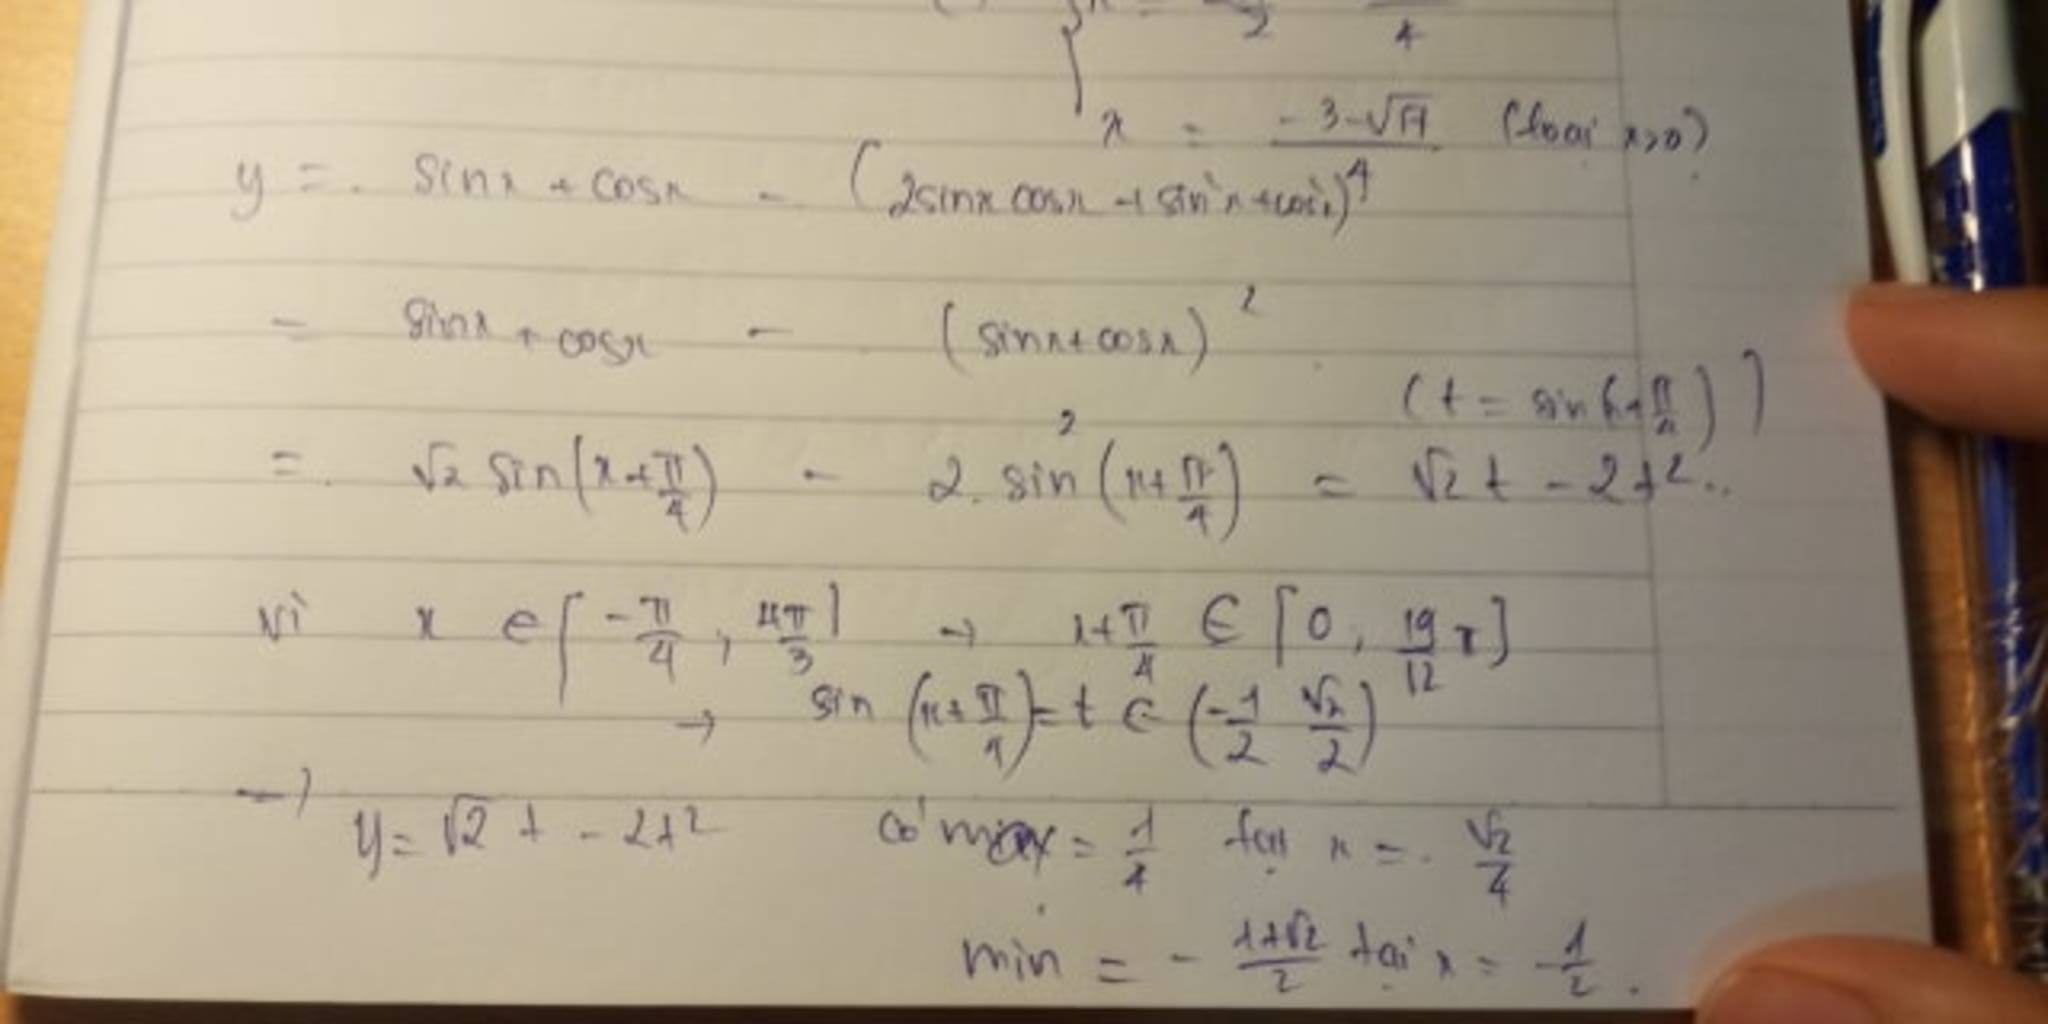 2 4
x = -3-√17 / 4 (loại x>0)
y = sinx + cosx - (2sinx cosx + sin²x + cos²x)
= sinx + cosx - (sinx + cosx)²
(t = sin(x+π/4))
= √2 sin(x+π/4) - 2. sin²(x+π/4) = √2 t - 2t²..
Vì x ∈ [-π/4, 4π/3] → x+π/4 ∈ [0, 19/12 π]
→ sin(x+π/4) = t ∈ (-1/2 √2/2)
→ y = √2 t - 2t² có max = 1/4 tại x = √2/4
min = - 1+√2 / 2 tại x = -1/2.